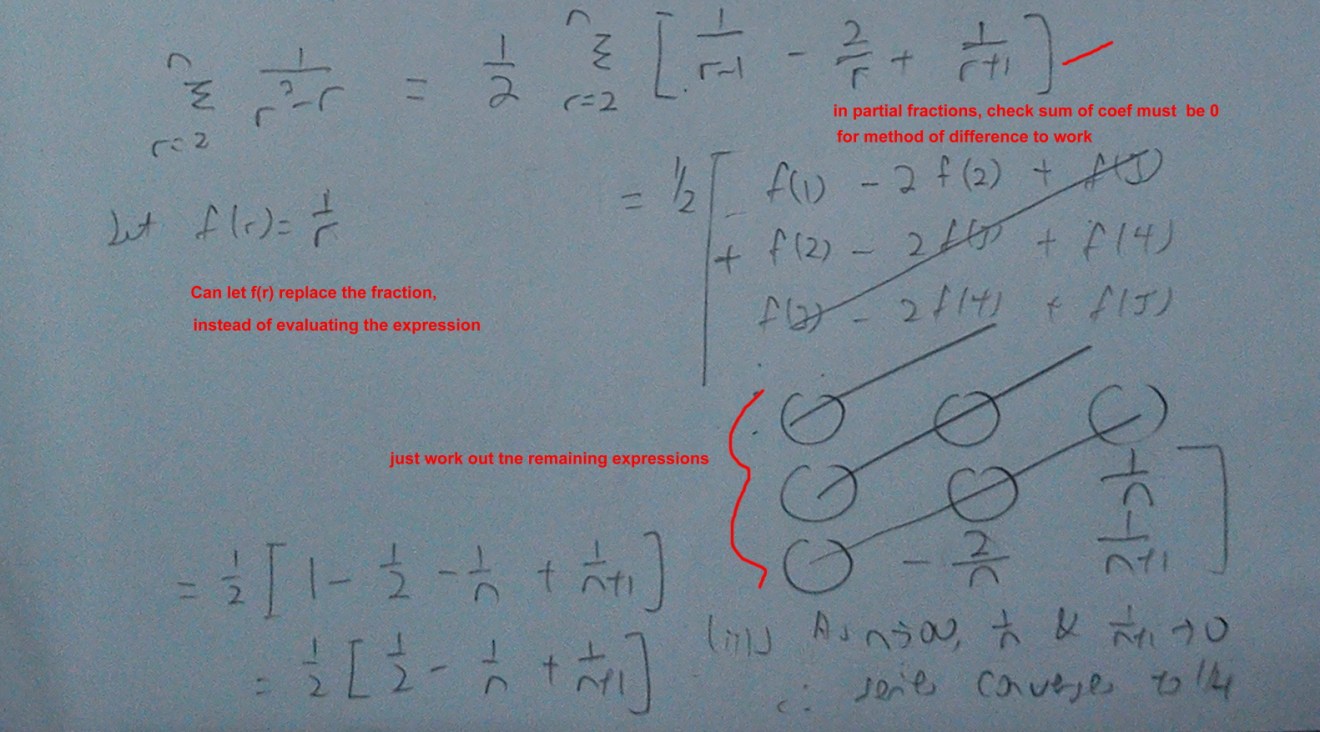 n Σ r=2 1/(r³-r) = 1/2 n Σ r=2 [1/(r-1) - 2/r + 1/(r+1)]
in partial fractions, check sum of coef must be 0
for method of difference to work
Let f(r) = 1/r
= 1/2 [ f(1) - 2 f(2) + f(3)
+ f(2) - 2 f(3) + f(4)
f(3) - 2 f(4) + f(5)
Can let f(r) replace the fraction,
instead of evaluating the expression
just work out tne remaining expressions
1/n
- 2/n 1/(n+1) ]
= 1/2 [ 1 - 1/2 - 1/n + 1/(n+1) ]
= 1/2 [ 1/2 - 1/n + 1/(n+1) ]
(iii) As n→∞, 1/n & 1/(n+1) → 0
∴ series converges to 1/4